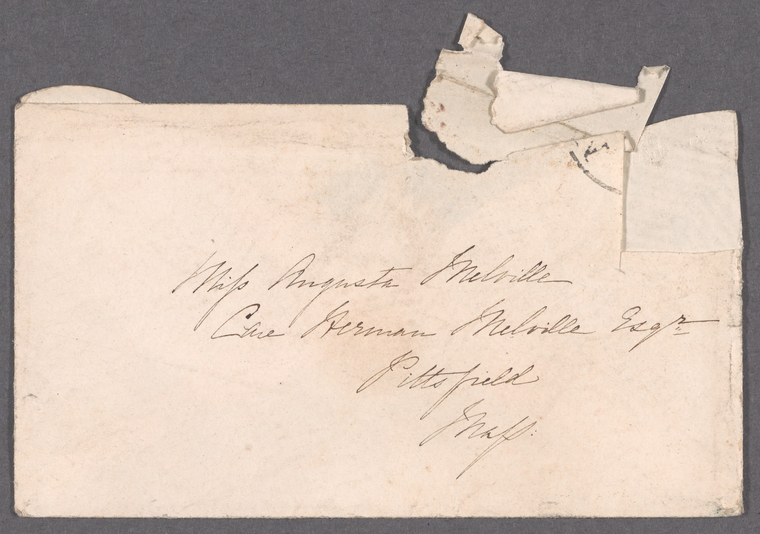 Miſs Augusta Melville
Care Herman Melville Esqr
Pittsfield
Maſs: